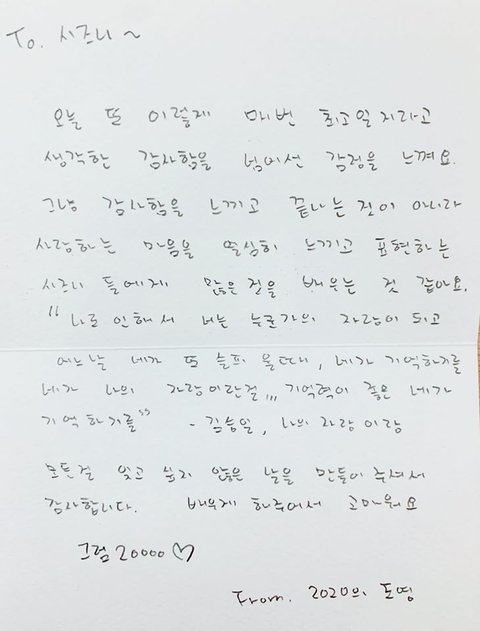 To. 시즈니 ~
오늘 또 이렇게 매번 최고일지라고
생각한 감사함을 넘어선 감정을 느껴요.
그냥 감사함을 느끼고 끝나는 것이 아니라
사랑하는 마음을 열심히 느끼고 표현하는
시즈니 들에게 많은 것을 배우는 것 같아요.
"나로 인해서 너는 누군가의 자랑이 되고
어느날 네가 또 슬피 울때, 네가 기억하기를
네가 나의 자랑이란걸,,, 기억력이 좋은 네가
기억하기를" - 김승일, 나의 자랑 이랑
모든걸 잊고 싶지 않은 날을 만들어 주셔서
감사합니다. 배우게 해주어서 고마워요
그럼 20000 ♡
From. 2020의 도영